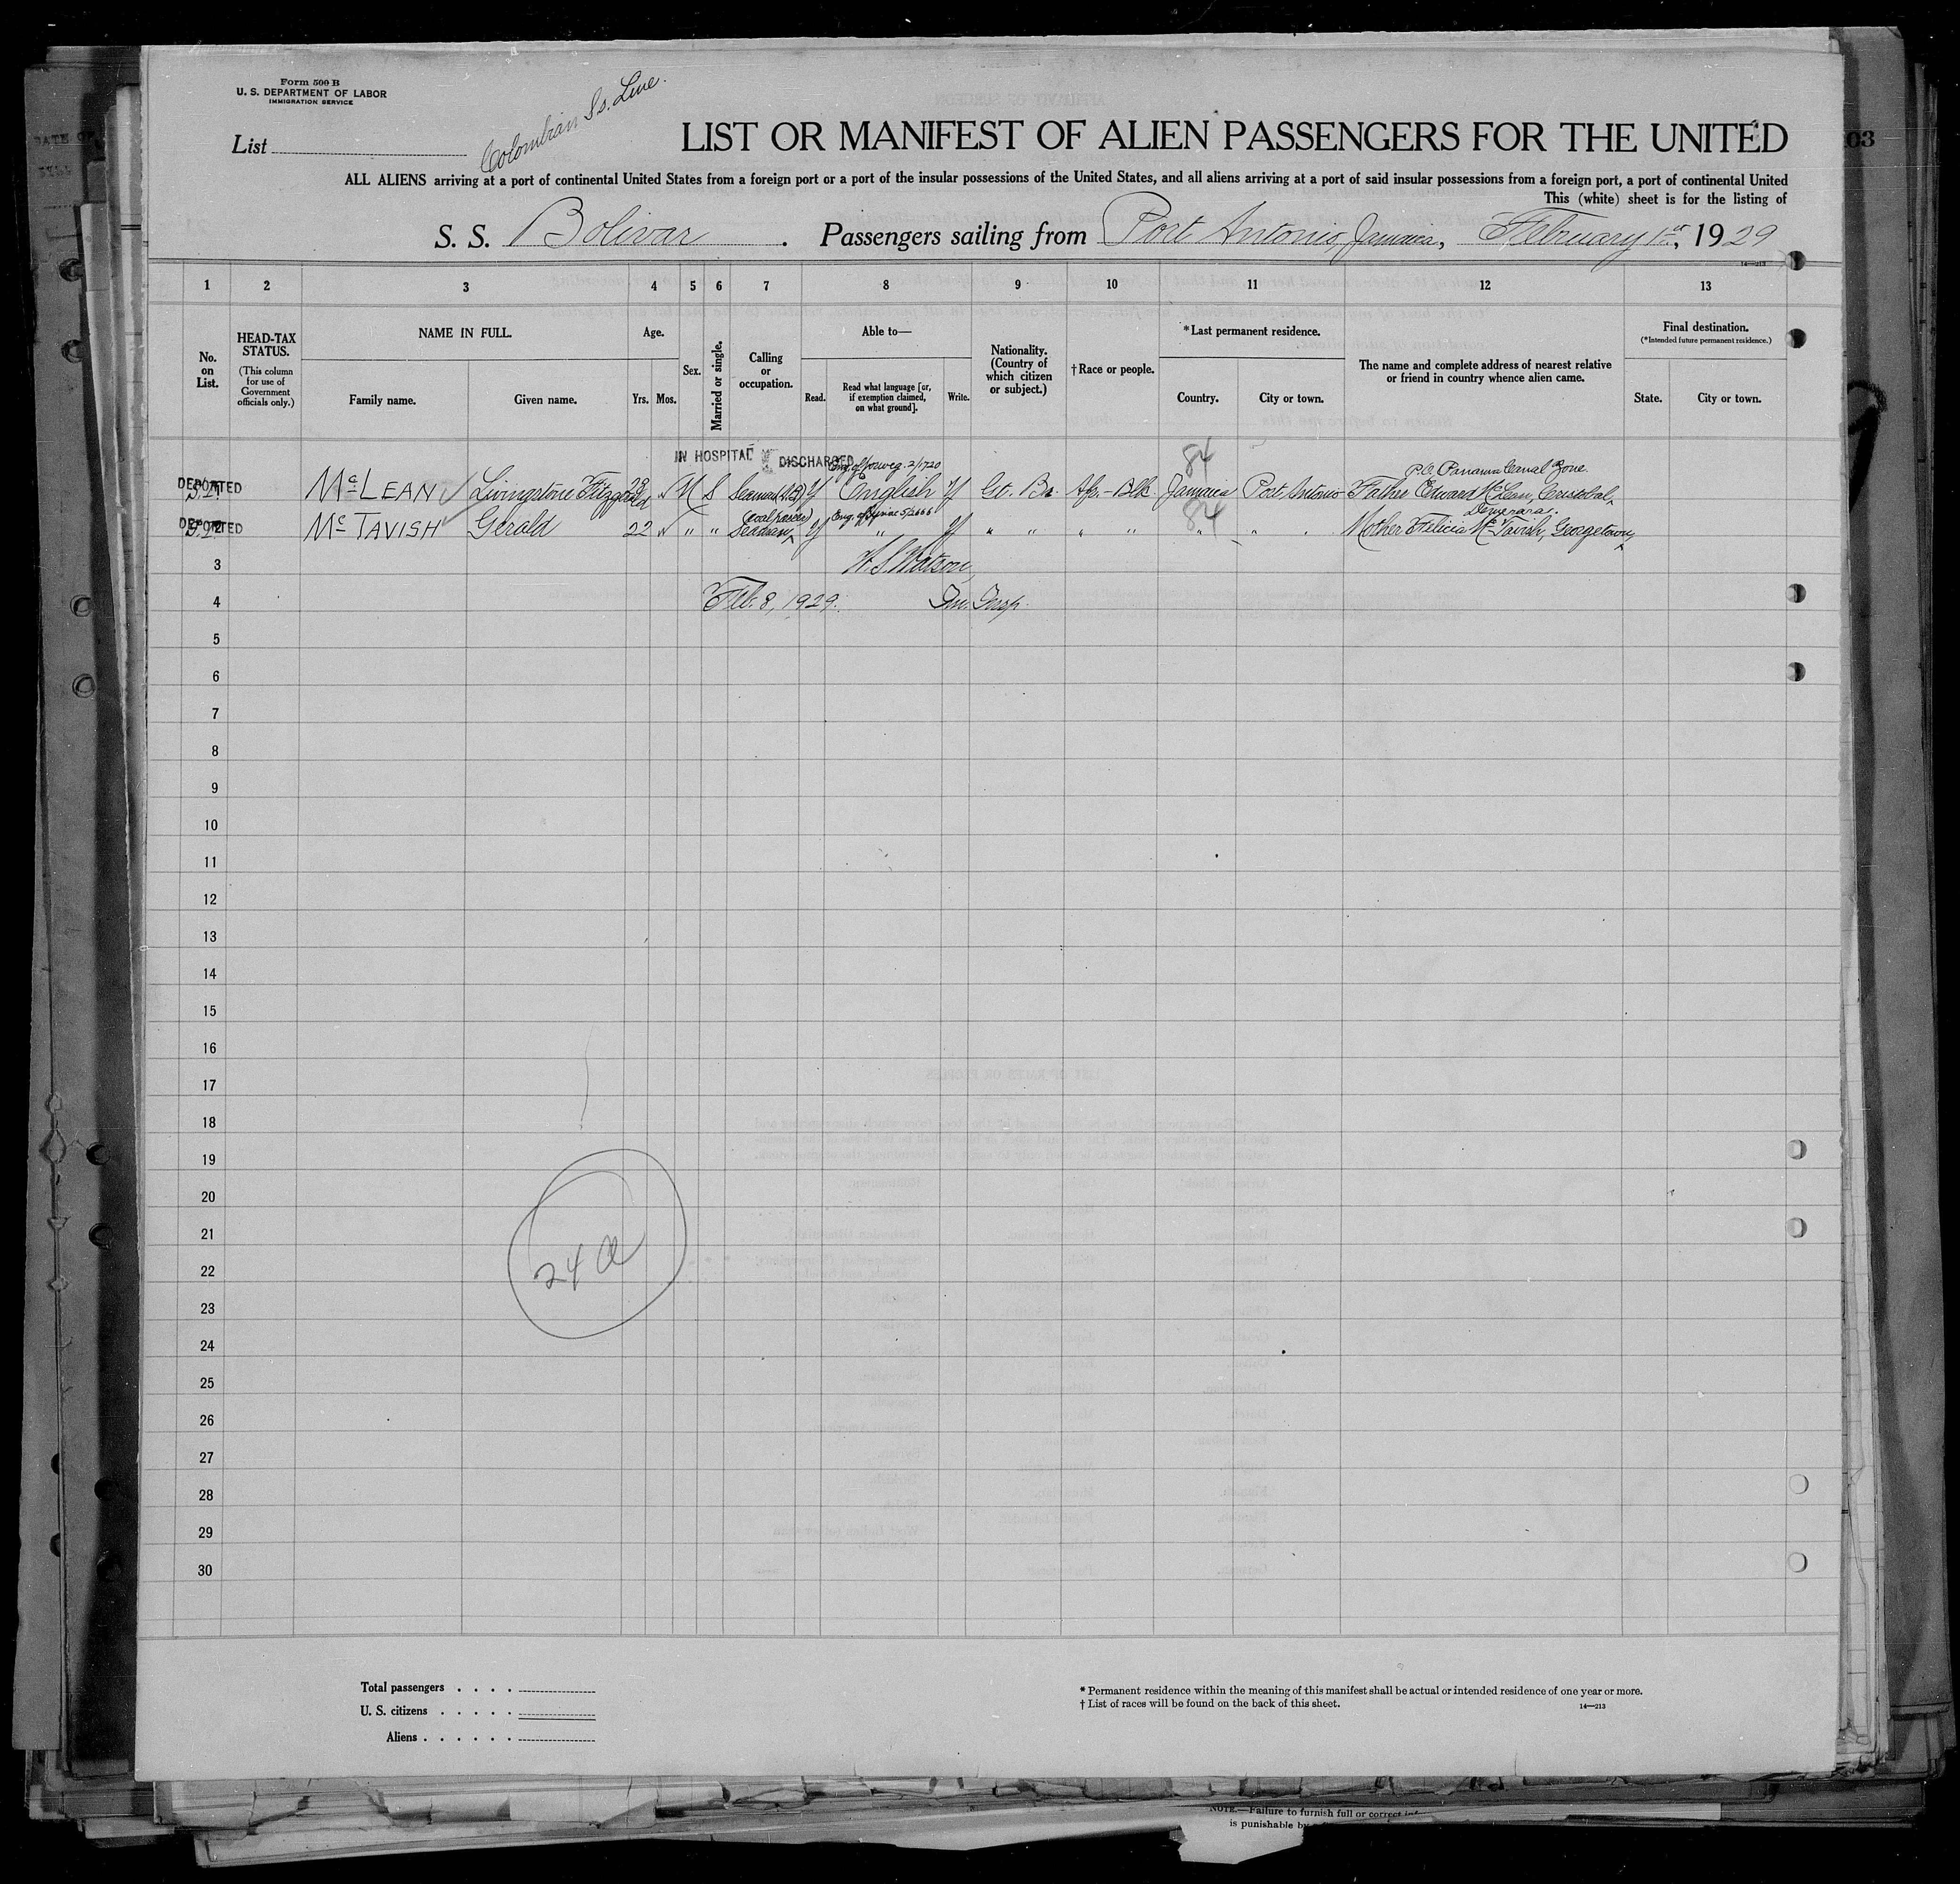 Form 500 B
U. S. DEPARTMENT OF LABOR
IMMIGRATION SERVICE
List
Colombian Ss. Line.
LIST OR MANIFEST OF ALIEN PASSENGERS FOR THE UNITED
03
ALL ALIENS arriving at a port of continental United States from a foreign port or a port of the insular possessions of the United States, and all aliens arriving at a port of said insular possessions from a foreign port, a port of continental United
This (white) sheet is for the listing of
S. S. Bolivar . Passengers sailing from Port Antonio, Jamaica, February 1st, 1929
14—213
1 2 3 4 5 6 7 8 9 10 11 12 13
No. on List.
HEAD-TAX STATUS.
(This column for use of Government officials only.)
NAME IN FULL.
Family name. Given name.
Age.
Yrs. Mos.
Sex.
Married or single.
Calling or occupation.
Able to—
Read. Read what language [or, if exemption claimed, on what ground]. Write.
Nationality. (Country of which citizen or subject.)
†Race or people.
*Last permanent residence.
Country. City or town.
The name and complete address of nearest relative or friend in country whence alien came.
Final destination.
(*Intended future permanent residence.)
State. City or town.
IN HOSPITAL DISCHARGED
84
P.O. Panama Canal Zone.
DEPORTED McLEAN Livingstone Fitzgerald 28 M S Seaman y English y Gt. Br. Afr.-Blk. Jamaica Port Antonio Father Edward McLean, Cristobal,
84
(coal passer)
Demerara.
DEPORTED McTAVISH Gerald 22 " " Seaman y " y " " " " " " Mother Felicia McTavish, Georgetown,
3 W. S. Watson,
4 Feb. 8, 1929. Im. Insp.
5
6
7
8
9
10
11
12
13
14
15
16
17
18
19
20
21
24 a
22
23
24
25
26
27
28
29
30
Total passengers . . . .
U. S. citizens . . . . .
Aliens . . . . . .
* Permanent residence within the meaning of this manifest shall be actual or intended residence of one year or more.
† List of races will be found on the back of this sheet.
14—213
NOTE.—Failure to furnish full or correct
is punishable by